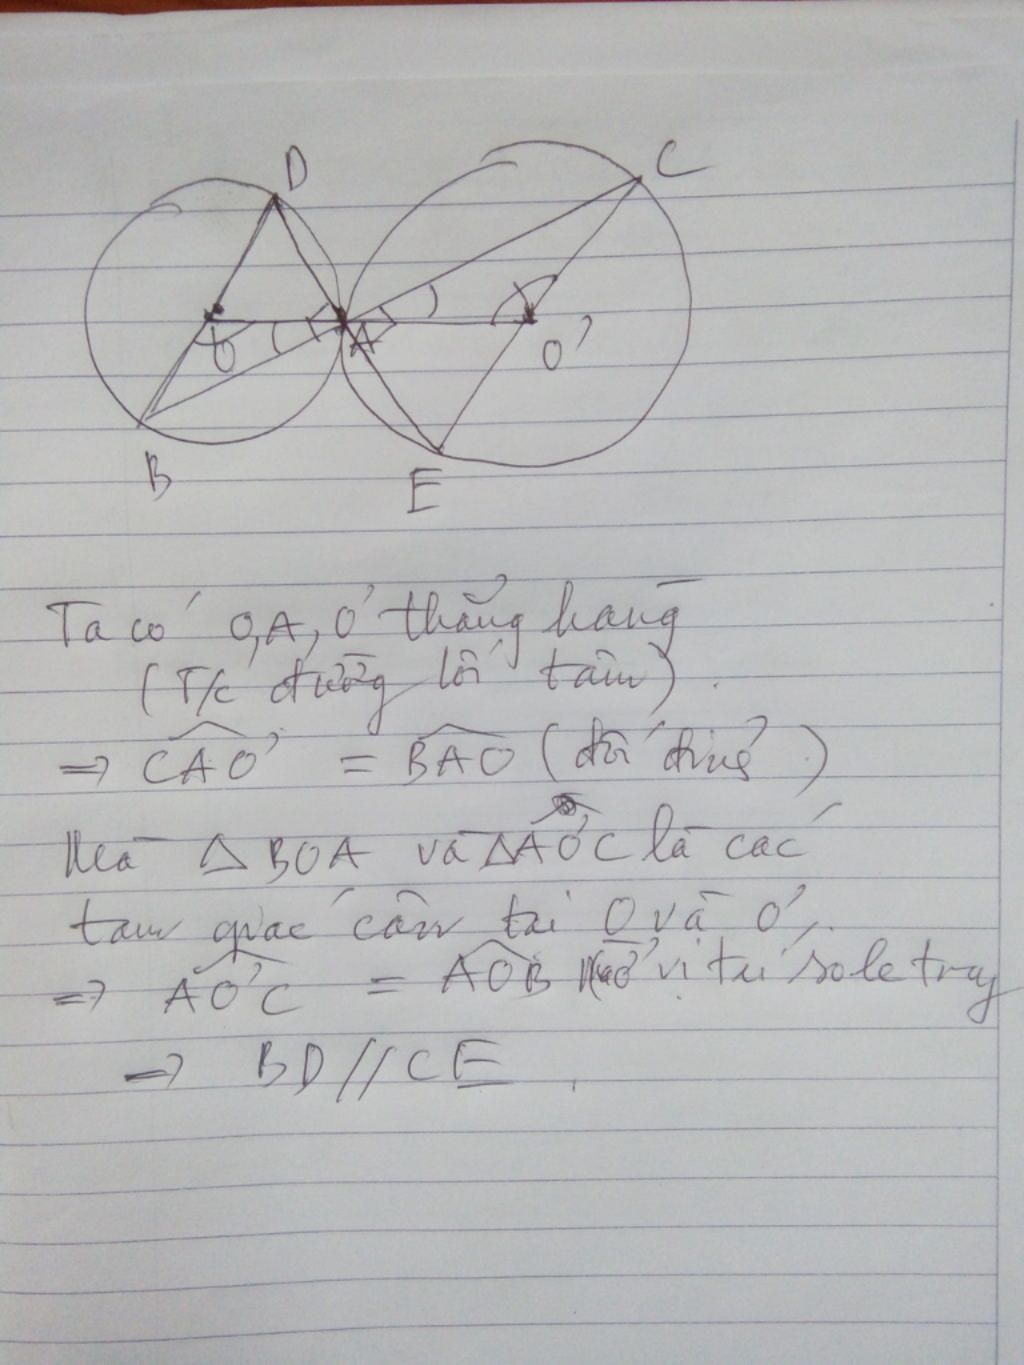 D
C
O
A
O'
B
E
Ta có O,A,O' thẳng hàng
(T/c đường lối tâm).
=> CAO' = BAO (đối đỉnh)
Mà △ BOA và △AO'C là các
tam giác cân tại O và O',
=> AO'C = AOB Mà ở vị trí so le trong
=> BD//CE